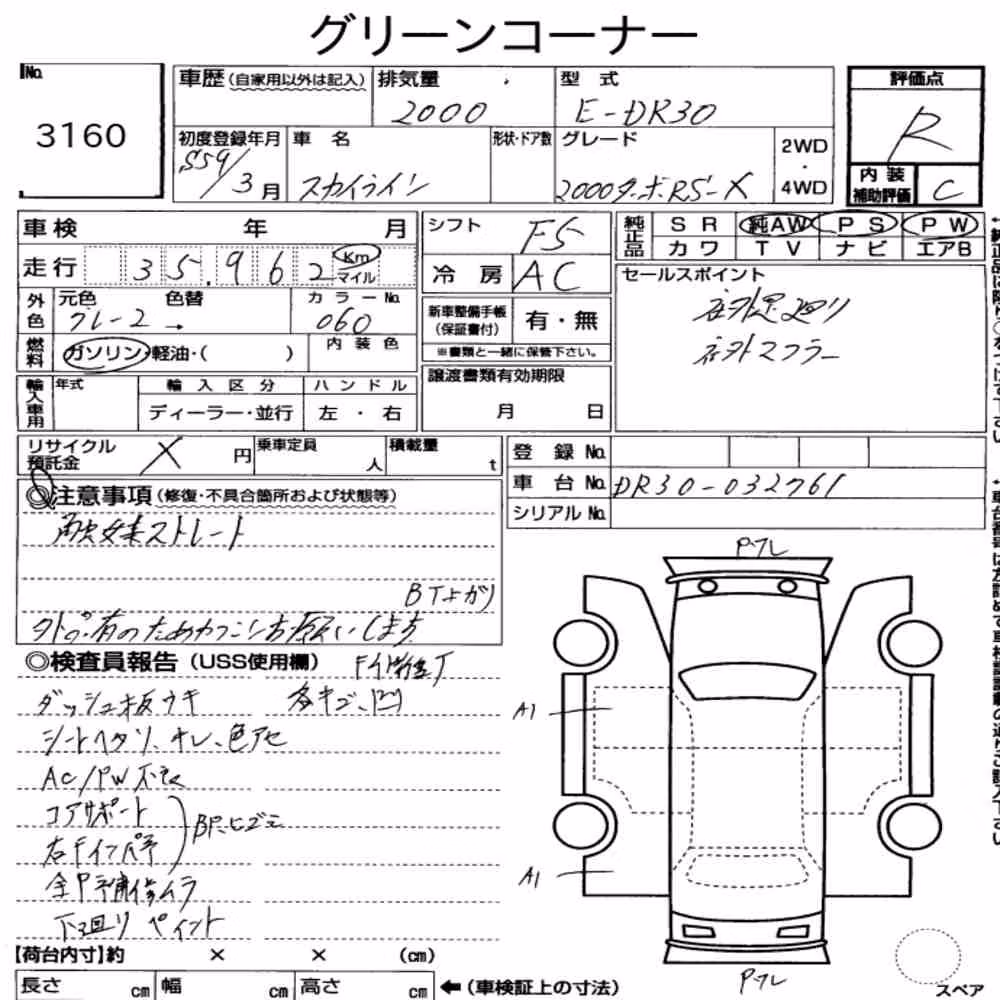 グリーンコーナー
No. 3160
車歴(自家用以外は記入) 排気量 2000 型式 E-DR30
初度登録年月 S59/3月 車名 スカイライン 形状・ドア数 グレード 2000ターボRS-X 2WD・4WD
評価点 R
内装補助評価 C
車検 年 月
走行 35,962 Km マイル
シフト F5
冷房 AC
純正品 SR 純AW PS PW
カワ TV ナビ エアB
外色 元色 グレー2 → 色替 カラーNo. 060
燃料 ガソリン・軽油・( ) 内装色
新車整備手帳(保証書付) 有・無
※書類と一緒に保管下さい。
セールスポイント
社外足廻り
社外マフラー
輸入車用 年式 輸入区分 ディーラー・並行 ハンドル 左・右
譲渡書類有効期限 月 日
リサイクル預託金 X 円 乗車定員 人 積載量 t
登録No.
車台No. DR30-032761
シリアルNo.
◎注意事項(修復・不具合箇所および状態等)
触媒ストレート
外品有のため
お願いします
◎検査員報告(USS使用欄)
ダッシュ板ウキ 各キズ、凹
シートヘタリ、キレ、色アセ
AC/PW不良
コアサポート
右Fインパネ
全P補修ムラ
下廻りペイント
P-フレ
A1
A1
P-フレ
スペア
【荷台内寸】約 × × (cm)
長さ cm 幅 cm 高さ cm ←(車検証上の寸法)